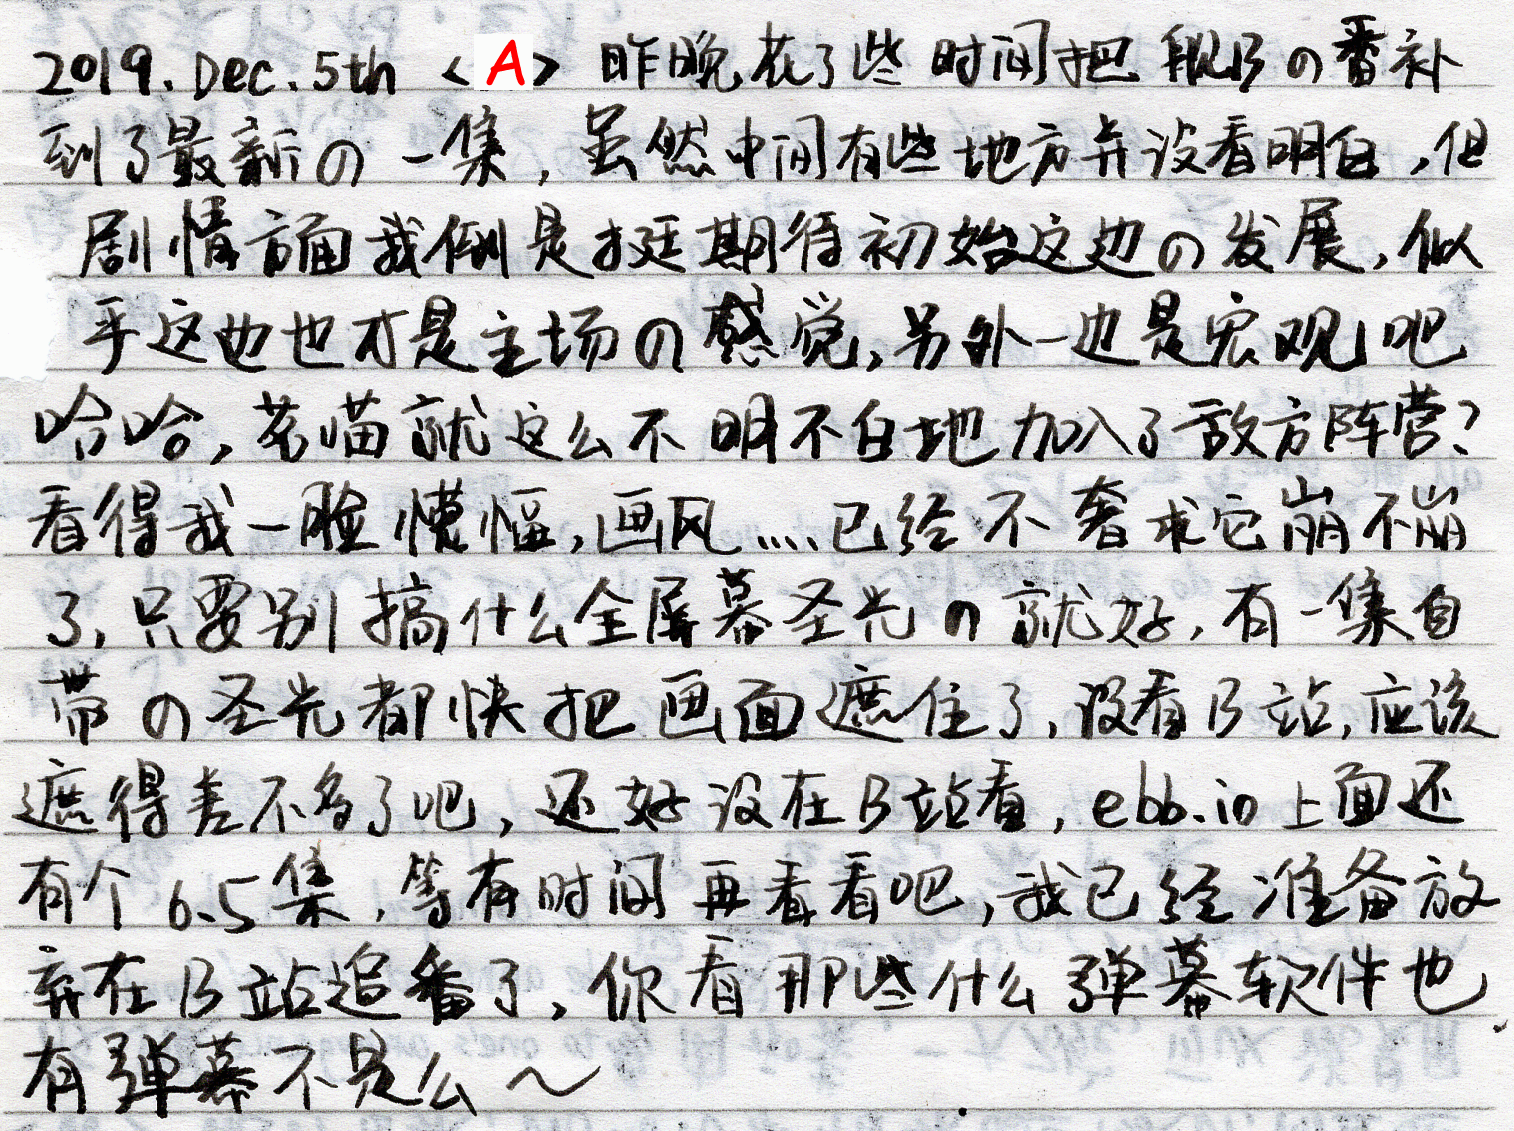 2019.Dec.5th <A> 昨晚花了些时间把舰Bの番补
到了最新の一集，虽然中间有些地方并没看明白，但
剧情方面我倒是挺期待初始这边の发展，似
乎这边也才是主场の感觉，另外一边是宏观吧
哈哈，茗喵就这么不明不白地加入了敌方阵营？
看得我一脸懵愊，画风……已经不奢求它崩不崩
了，只要别搞什么全屏幕圣光の就好，有一集自
带の圣光都快把画面遮住了，没看B站，应该
遮得差不多了吧，还好没在B站看，ebb.io上面还
有个6.5集，等有时间再看看吧，我已经准备放
弃在B站追番了，你看那些什么弹幕软件也
有弹幕不是么～